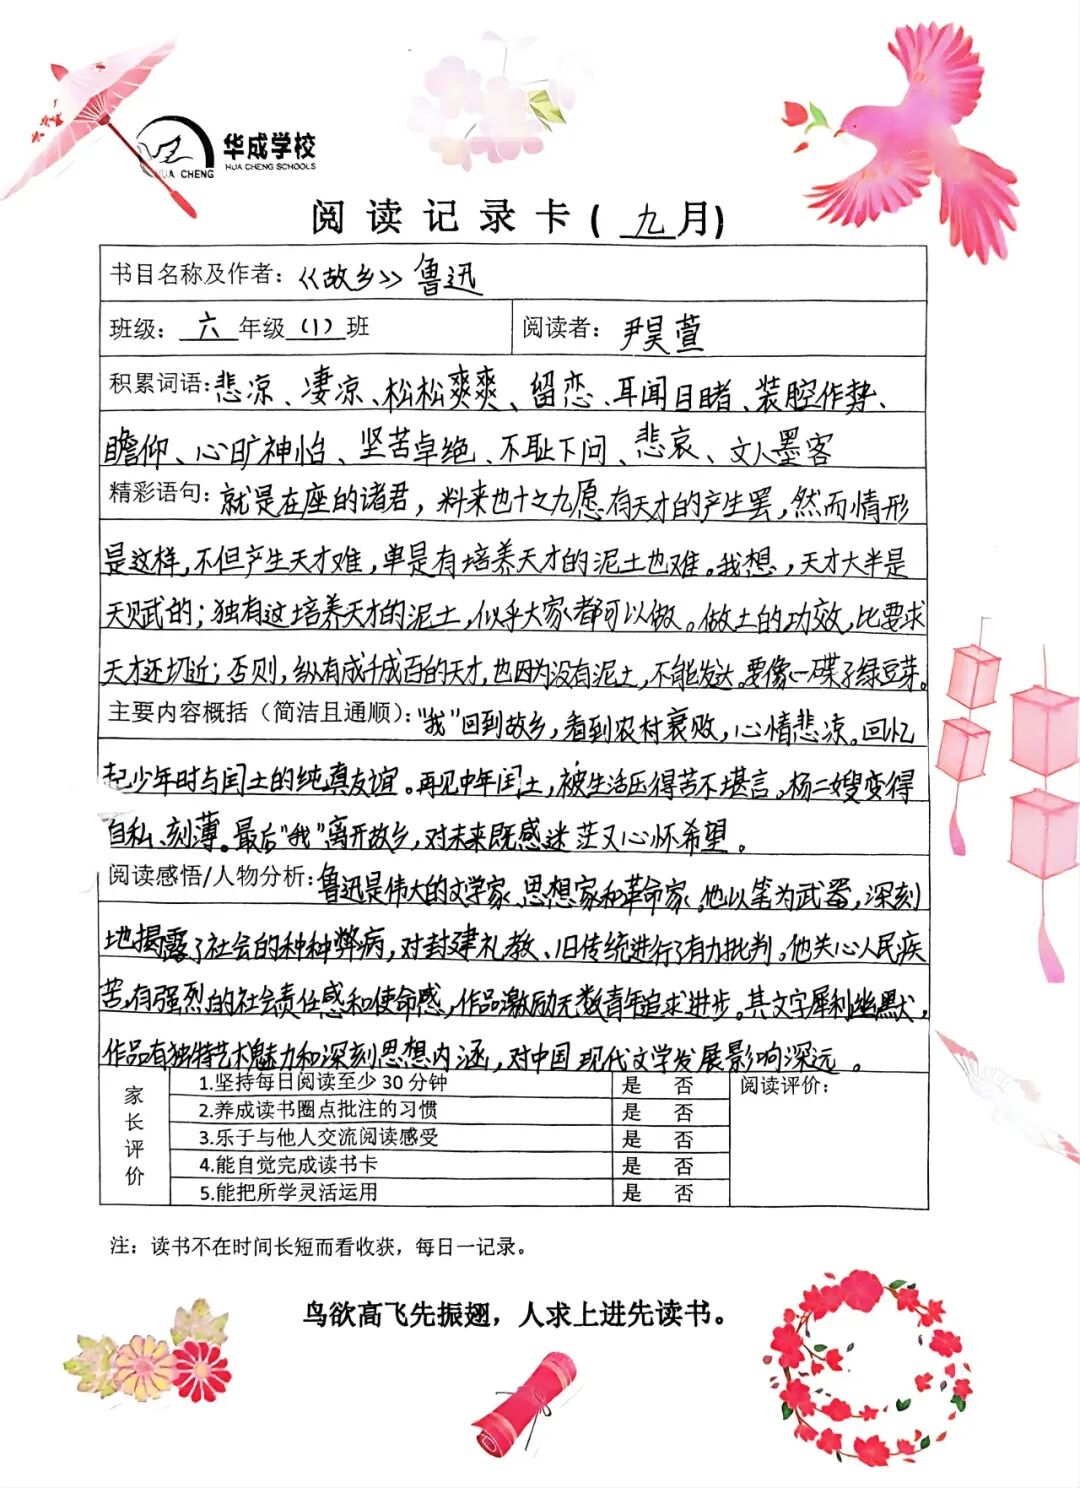 华成学校
HUA CHENG SCHOOLS
HUA CHENG
阅读记录卡(九月)
书目名称及作者：《故乡》鲁迅
班级：六年级(1)班 阅读者：尹昊萱
积累词语：悲凉、凄凉、松松爽爽、留恋、耳闻目睹、装腔作势、
瞻仰、心旷神怡、坚苦卓绝、不耻下问、悲哀、文人墨客
精彩语句：就是在座的诸君，料来也十之九愿有天才的产生罢，然而情形
是这样，不但产生天才难，单是有培养天才的泥土也难。我想，天才大半是
天赋的；独有这培养天才的泥土，似乎大家都可以做。做土的功效，比要求
天才还切近；否则，纵有成千成百的天才，也因为没有泥土，不能发达。要像一碟子绿豆芽。
主要内容概括（简洁且通顺）："我"回到故乡，看到农村衰败，心情悲凉。回忆
起少年时与闰土的纯真友谊。再见中年闰土，被生活压得苦不堪言。杨二嫂变得
自私、刻薄。最后"我"离开故乡，对未来既感迷茫又心怀希望。
阅读感悟/人物分析：鲁迅是伟大的文学家、思想家和革命家。他以笔为武器，深刻
地揭露了社会的种种弊病，对封建礼教、旧传统进行了有力批判。他关心人民疾
苦，有强烈的社会责任感和使命感，作品激励无数青年追求进步。其文字犀利幽默，
作品有独特艺术魅力和深刻思想内涵，对中国现代文学发展影响深远。
家长评价
1.坚持每日阅读至少30分钟 是 否 阅读评价：
2.养成读书圈点批注的习惯 是 否
3.乐于与他人交流阅读感受 是 否
4.能自觉完成读书卡 是 否
5.能把所学灵活运用 是 否
注：读书不在时间长短而看收获，每日一记录。
鸟欲高飞先振翅，人求上进先读书。